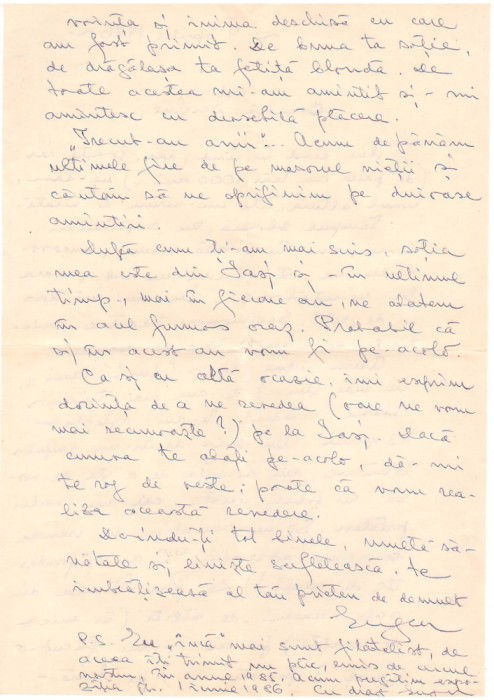 voința și inima deschisă cu care
am fost primit. De buna ta soție,
de drăgălașa ta fetiță blondă. De
toate acestea mi-am amintit și-mi
amintesc cu deosebită plăcere.
"Trecut-au anii"... Acum depănăm
ultimele fire de pe mosorul vieții și
căutăm să ne sprijinim pe duioase
amintiri.
După cum ți-am mai scris, soția
mea este din Iași și - în ultimul
timp, mai în fiecare an, ne abatem
în acel frumos oraș. Probabil că
și în acest an vom fi pe-acolo.
Ca și cu altă ocazie, îmi exprim
dorința de a ne revedea (oare ne vom
mai recunoaște?) pe la Iași. Dacă
cumva te abați pe-acolo, dă-mi
te rog de veste; poate că vom rea-
liza această revedere.
Dorindu-ți tot binele, multă să-
nătate și liniște sufletească, te
îmbrățișează al tău prieten de demult
Eugen
P.S. Eu "încă" mai sunt filatelist, de
aceea îți trimit un plic, emis de cercul
nostru, în anul 1985. Acum pregătim expo-
ziția 1 iunie 1986. Cu drag